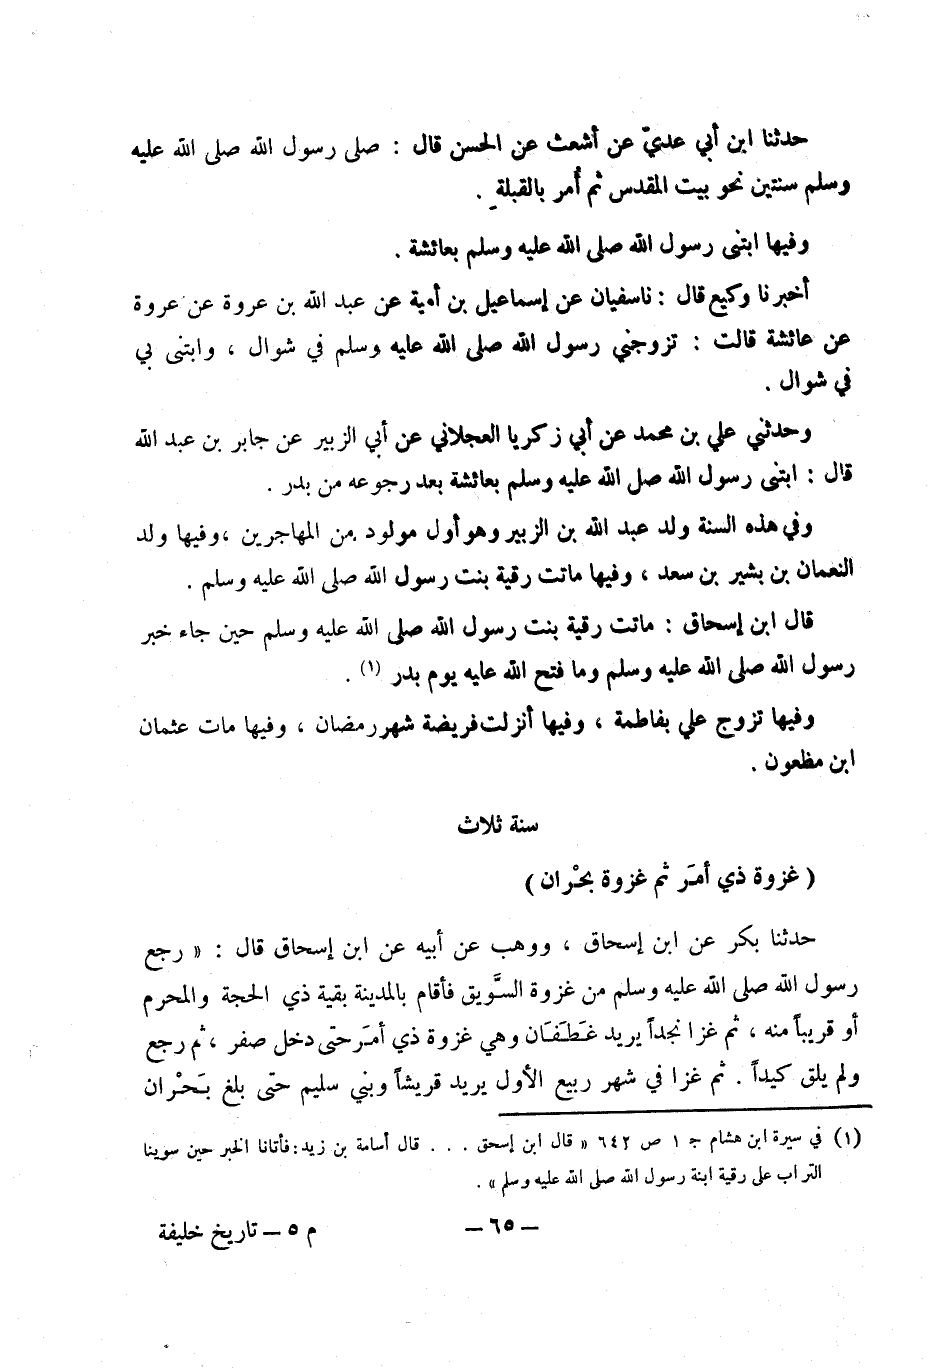 حدثنا ابن أبي عديّ عن أشعث عن الحسن قال : صلى رسول الله صلى الله عليه
وسلم سنتين نحو بيت المقدس ثم أُمر بالقبلة .
وفيها ابتنى رسول الله صلى الله عليه وسلم بعائشة .
أخبرنا وكيع قال : نا سفيان عن إسماعيل بن أمية عن عبد الله بن عروة عن عروة
عن عائشة قالت : تزوجني رسول الله صلى الله عليه وسلم في شوال ، وابتنى بي
في شوال .
وحدثني علي بن محمد عن أبي زكريا العجلاني عن أبي الزبير عن جابر بن عبد الله
قال : ابتنى رسول الله صلى الله عليه وسلم بعائشة بعد رجوعه من بدر .
وفي هذه السنة ولد عبد الله بن الزبير وهو أول مولود من المهاجرين ، وفيها ولد
النعمان بن بشير بن سعد ، وفيها ماتت رقية بنت رسول الله صلى الله عليه وسلم .
قال ابن إسحاق : ماتت رقية بنت رسول الله صلى الله عليه وسلم حين جاء خبر
رسول الله صلى الله عليه وسلم وما فتح الله عليه يوم بدر (١) .
وفيها تزوج علي بفاطمة ، وفيها أنزلت فريضة شهر رمضان ، وفيها مات عثمان
ابن مظعون .
سنة ثلاث
( غزوة ذي أمَر ثم غزوة بحْران )
حدثنا بكر عن ابن إسحاق ، ووهب عن أبيه عن ابن إسحاق قال : « رجع
رسول الله صلى الله عليه وسلم من غزوة السَّويق فأقام بالمدينة بقية ذي الحجة والمحرم
أو قريباً منه ، ثم غزا نجداً يريد غَطَفَان وهي غزوة ذي أمَر حتى دخل صفر ، ثم رجع
ولم يلق كيداً . ثم غزا في شهر ربيع الأول يريد قريشاً وبني سليم حتى بلغ بَحْران
(١) في سيرة ابن هشام ج ١ ص ٦٤٢ « قال ابن إسحق . . . قال أسامة بن زيد : فأتانا الخبر حين سوينا
التراب على رقية ابنة رسول الله صلى الله عليه وسلم » .
– ٦٥ –
م ٥ – تاريخ خليفة